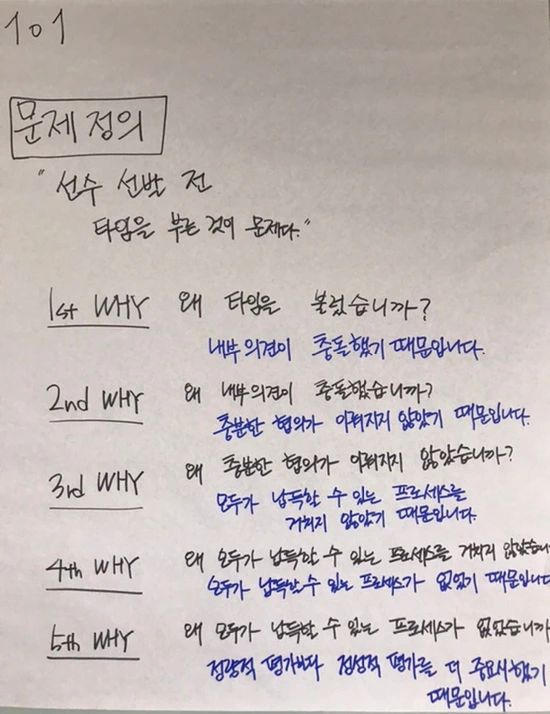 101
문제 정의
"선수 선발 전
타임을 부른 것이 문제다."
1st WHY 왜 타임을 불렀습니까?
내부 의견이 충돌했기 때문입니다.
2nd WHY 왜 내부 의견이 충돌했습니까?
충분한 협의가 이뤄지지 않았기 때문입니다.
3rd WHY 왜 충분한 협의가 이뤄지지 않았습니까?
모두가 납득할 수 있는 프로세스를
거치지 않았기 때문입니다.
4th WHY 왜 모두가 납득할 수 있는 프로세스를 거치지 않았습니
모두가 납득할 수 있는 프로세스가 없었기 때문입니다
5th WHY 왜 모두가 납득할 수 있는 프로세스가 없었습니까
정량적 평가보다 정성적 평가를 더 중요시했기
때문입니다.